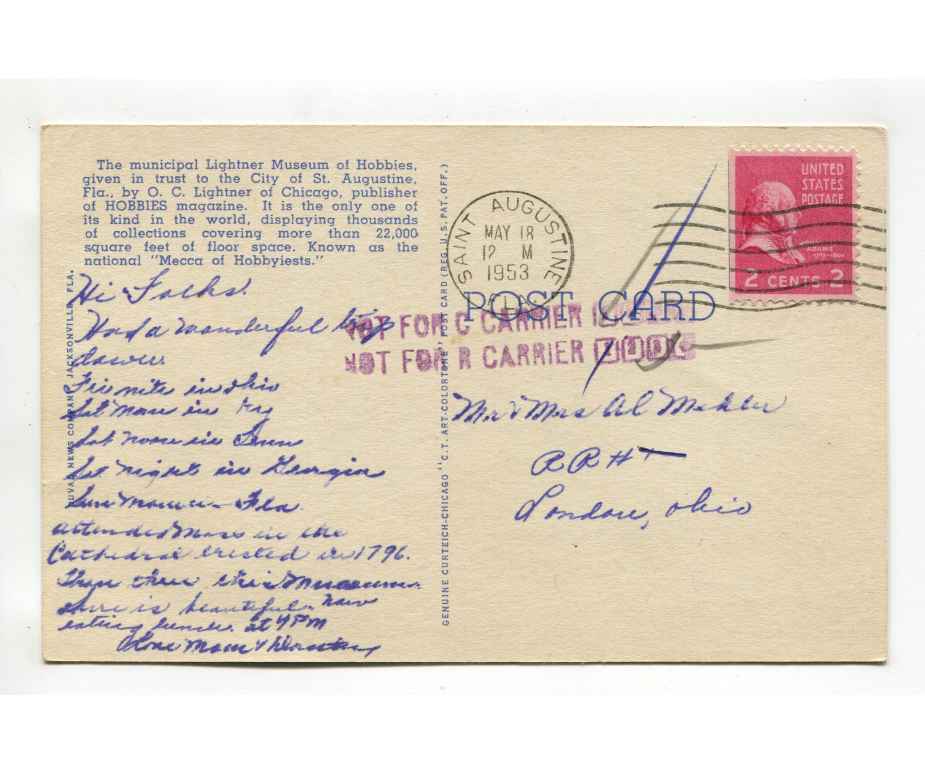 The municipal Lightner Museum of Hobbies,
given in trust to the City of St. Augustine,
Fla., by O. C. Lightner of Chicago, publisher
of HOBBIES magazine. It is the only one of
its kind in the world, displaying thousands
of collections covering more than 22,000
square feet of floor space. Known as the
national "Mecca of Hobbyiests."
Hi Folks.
Had a wonderful trip
down.
Fri nite in Ohio
Sat Morn in Ky
Sat noon in Tenn
Sat night in Georgia
Sun Morn - Fla.
Attended Mass in the
Cathedral erected in 1796.
then this Museum
is beautiful. Now
eating lunch at 4 PM
Love Mom &
NEWS COMPANY, JACKSONVILLE, FLA.
GENUINE CURTEICH-CHICAGO "C.T. ART-COLORTONE" POST CARD (REG. U.S. PAT. OFF.)
SAINT AUGUSTINE
MAY 18
12 M
1953
FLA.
UNITED
STATES
POSTAGE
ADAMS
2 CENTS 2
POST CARD
NOT FOR C CARRIER
NOT FOR R CARRIER
Mr & Mrs Al
RR #
London, Ohio